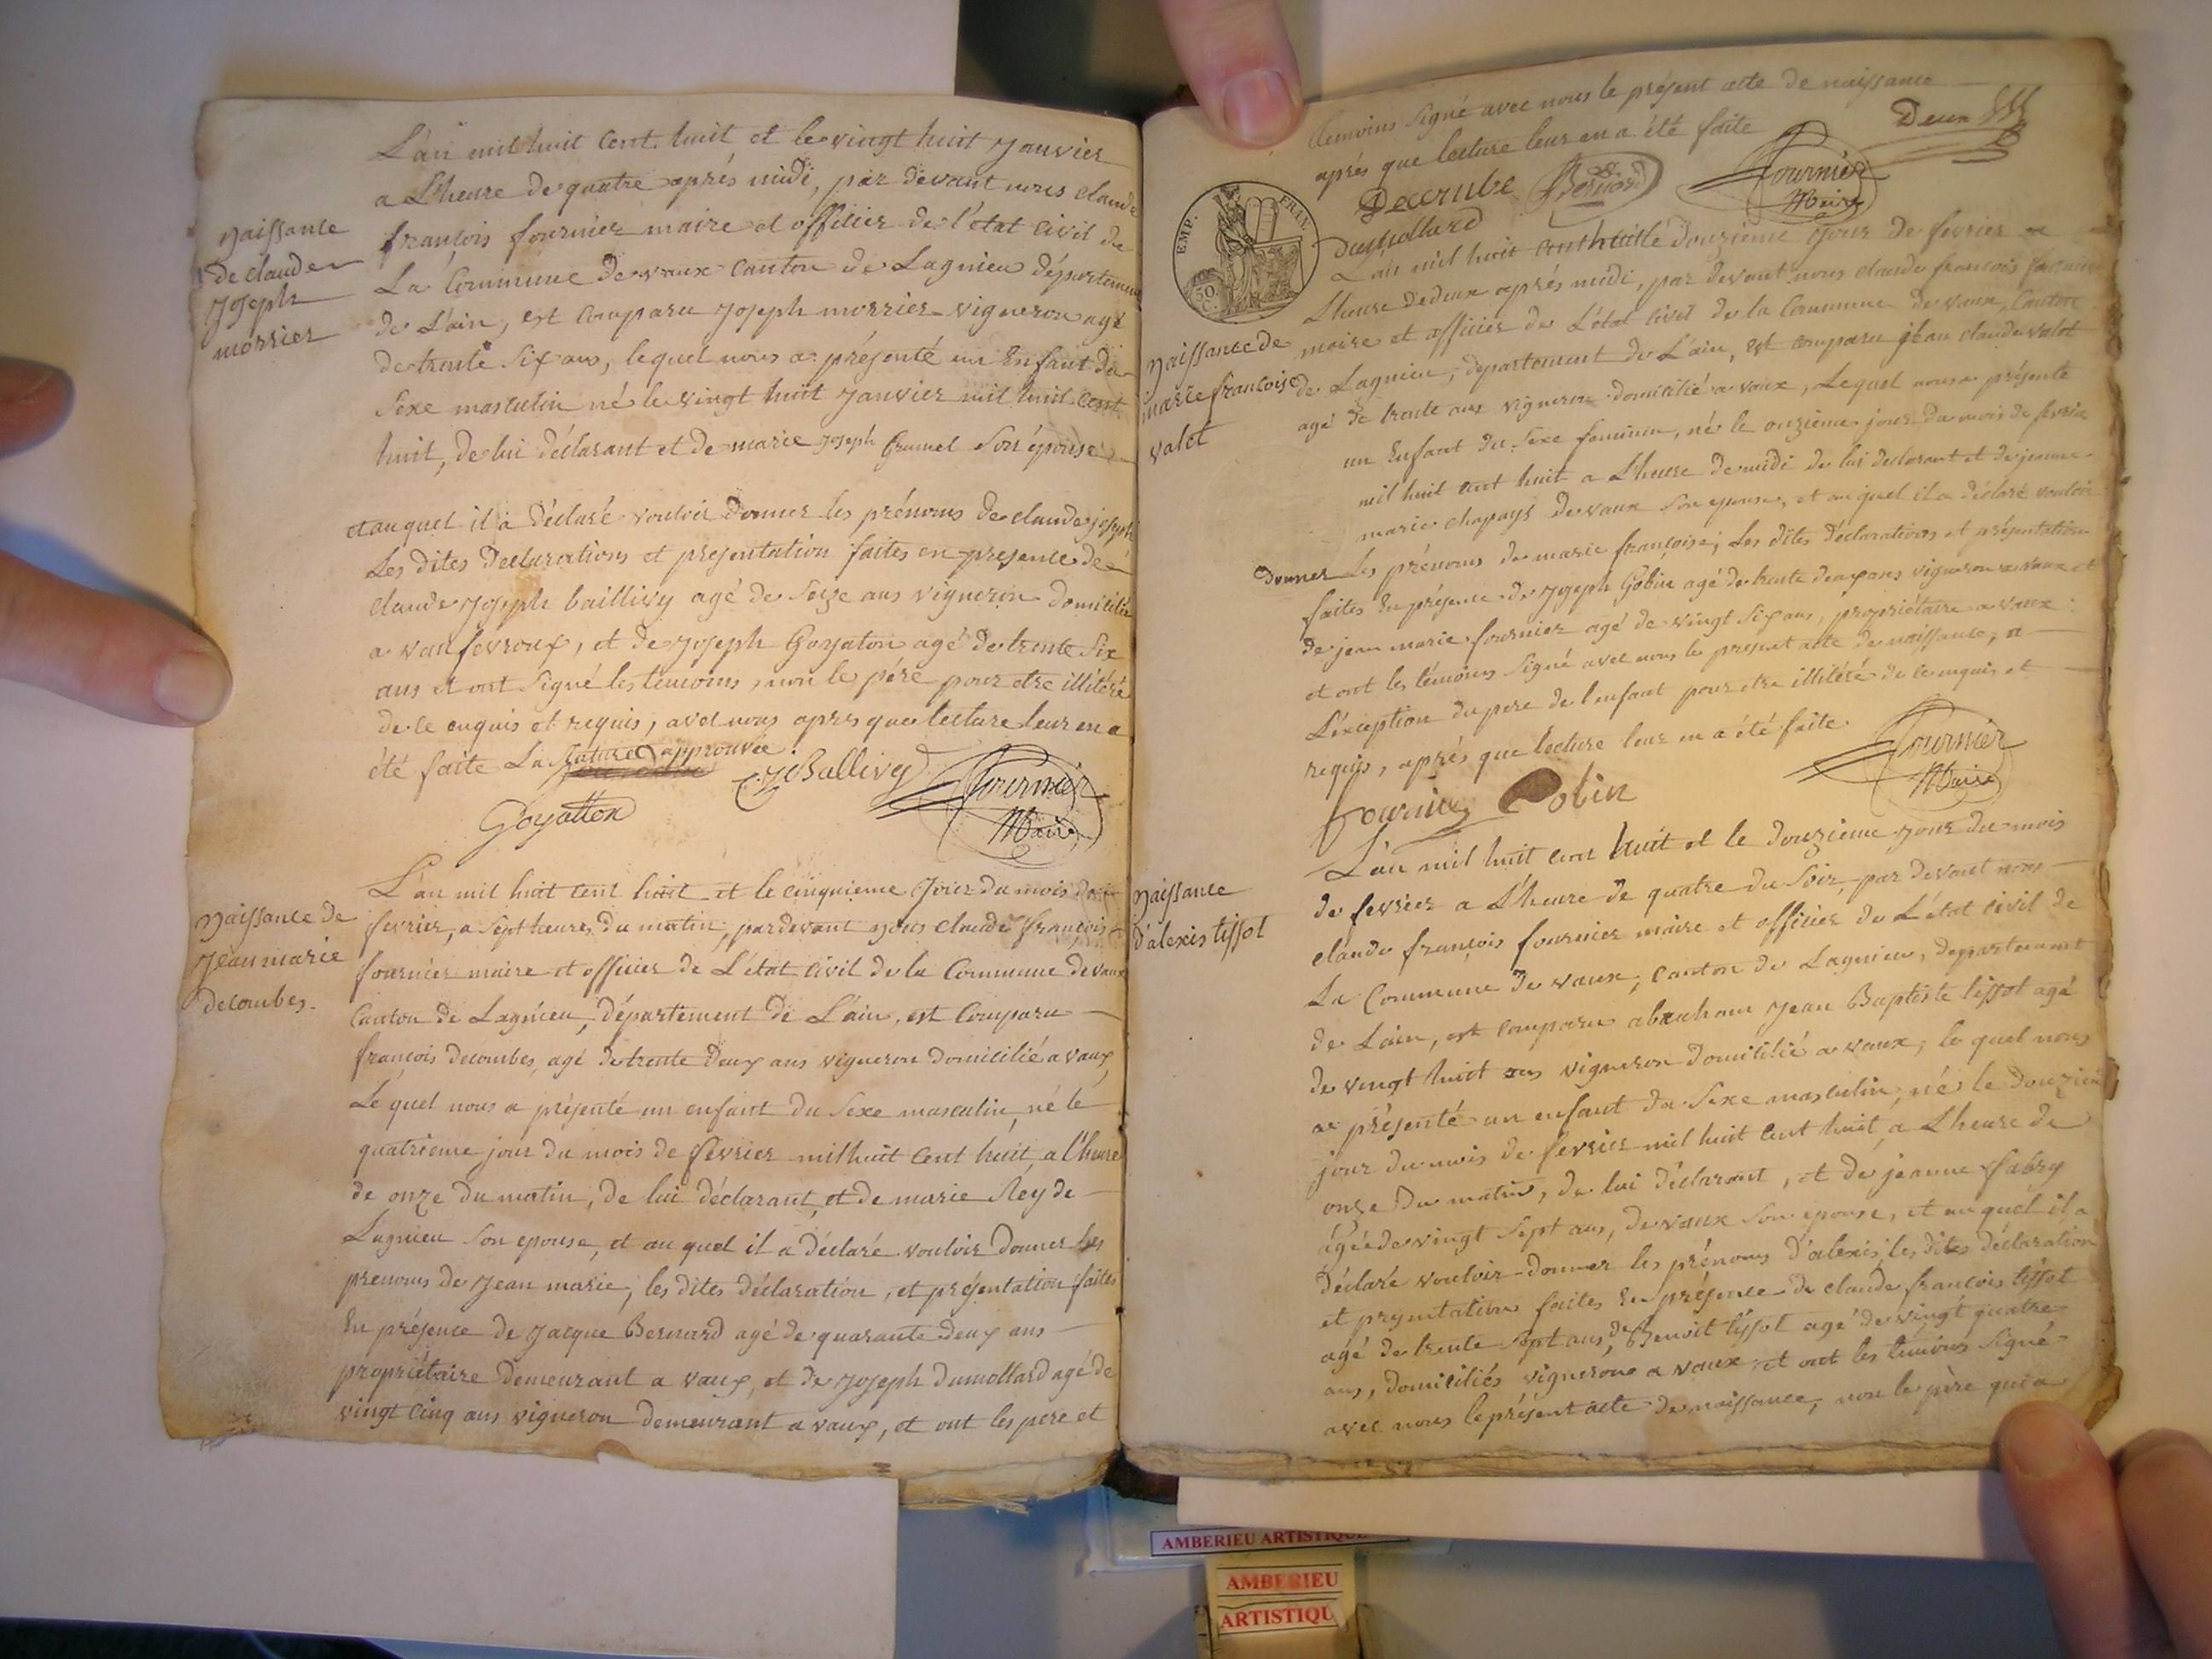 L'an mil huit cent huit et le vingt huit Janvier
a L'heure de quatre aprés midi, par devant nous claude
françois fournier maire et officier de l'état civil de
La Commune de vaux canton de Lagnieu département
de L'ain, est comparu Joseph morrier vigneron agé
de trente six ans, lequel nous a présenté un Enfant du
Sexe masculin né le vingt huit Janvier mil huit cent
huit, de lui déclarant et de marie Joseph Son épouse
et auquel il a déclaré vouloir donner les prénoms de claude joseph
Les dites Declarations et presentation faites en presence de
claude Joseph baillivy agé de Seize ans vigneron domicilié
a vaufevroux, et de Joseph Goyaton agé de trente Six
ans et ont Signé les temoins, non le pére pour etre illitéré
de ce enquis et requis, avec nous apres que lecture leur en a
été faite La rature approuvée
C J Ballivy
Fournier
Maire
Goyatton
Naissance
de claude
Joseph
morrier
L'an mil huit cent huit et le cinquieme Jour du mois de
fevrier, a Sept heures du matin, pardevant nous claude françois
fournier maire et officier de L'état civil de la Commune de vaux
Canton de Lagnieu, département de L'ain, est Comparu
françois decombes, agé de trente deux ans vigneron domicilié a vaux,
Le quel nous a présenté un enfant du Sexe masculin, né le
quatrieme jour du mois de fevrier mil huit cent huit, a l'heure
de onze du matin, de lui déclarant, et de marie Rey de
Lagnieu Son epouse, et au quel il a déclaré vouloir donner les
prenoms de Jean marie, les dites déclaration, et présentation faites
En présence de Jacque Bernard agé de quarante deux ans
propriétaire demeurant a vaux, et de Joseph dumollard agé de
vingt cinq ans vigneron demeurant a vaux, et ont les pere et
Naissance de
Jean marie
decombes.
temoins Signé avec nous le présent acte de naissance
aprés que lecture leur en a été faite
Deux
Decrnbe
Bernard
Fournier
Maire
Dumollard
EMP. FRAN.
50
C.
L'an mil huit cent huit le douzieme Jour de fevrier a
L'heure de deux aprés midi, par devant nous claude francois fournier
maire et officier de L'état civil de la Commune de vaux, Canton
de Lagnieu, departement de L'ain, est comparu jean claude valot
agé de trente ans vigneron domicilié a vaux, Lequel nous a présenté
un Enfant du Sexe feminin, né le onzieme jour du mois de fevrier
mil huit cent huit a L'heure de midi de lui declarant et de jeanne
marie chapuys de vaux Son epouse, et au quel il a déclaré vouloir
donner Les prénoms de marie françoise; Les dites déclarations et présentation
faites En présence de Joseph Gobin agé de trente deux ans vigneron a vaux et
de jean marie fournier agé de vingt Six ans, propriétaire a vaux
et ont les témoins Signé avec nous le present acte de naissance, a
L'exception du pere de l'enfant pour etre illitéré de ce enquis et
requis, aprés que lecture leur en a été faite
Fournier
Maire
fournier Gobin
Naissance de
marie françoise
valot
L'an mil huit cent huit et le douzieme Jour du mois
de fevrier a L'heure de quatre du Soir, par devant nous
claude françois fournier maire et officier de L'état civil de
La Commune de vaux, canton de Lagnieu, departement
de L'ain, est comparu abraham Jean Baptiste tissot agé
de vingt huit ans vigneron domicilié a vaux, le quel nous
a présenté un enfant du Sexe masculin, né le douzieme
jour du mois de fevrier mil huit cent huit, a L'heure de
onze du matin, de lui déclarant, et de jeanne fabry
agée de vingt Sept ans, de vaux Son epouse, et au quel il a
déclaré vouloir donner les prénoms d'alexis, les dites déclaration
et presentation faites En présence de claude francois tissot
agé de trente Sept ans, de Benoit tissot agé de vingt quatre
ans, domiciliés vignerons a vaux et ont les témoins Signé
avec nous le présent acte de naissance, non le père qui a
Naissance
d'alexis tissot
AMBERIEU ARTISTIQUE
AMBERIEU
ARTISTIQU